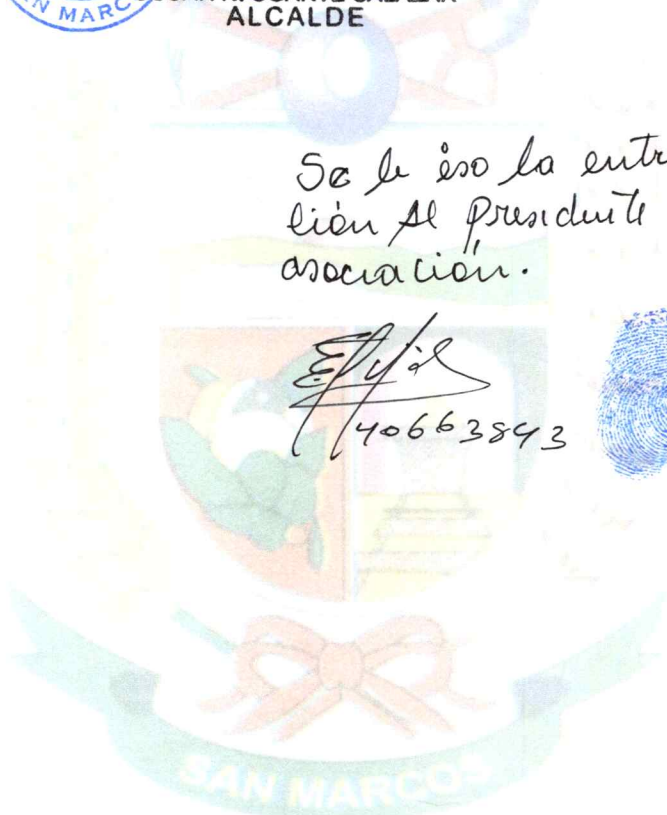 AN MARCOS
ALCALDE
Se le iso la entr
ción Al Presidente
asociación.
40663843
SAN MARCOS